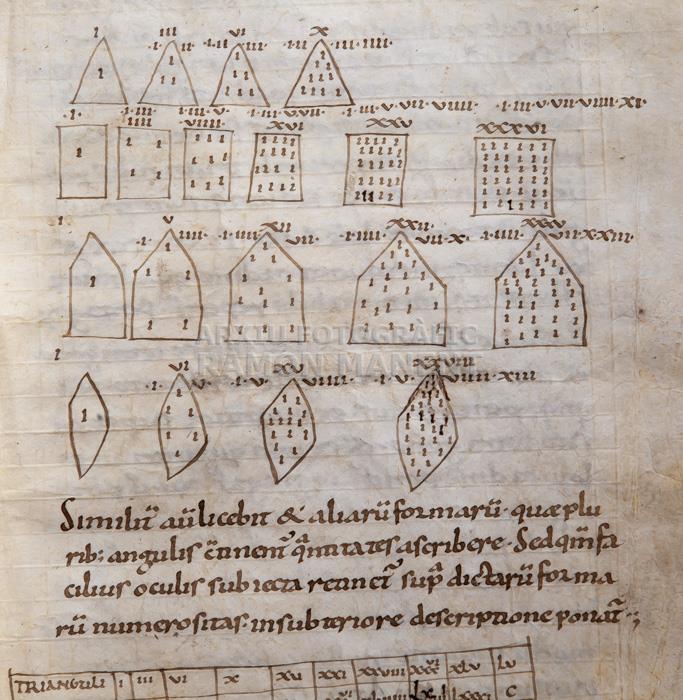 I III VI X
·I· ·II· ·I·II·III· ·I·II· ·III·IIII·
·I· ·I·III· ·I·III·V· ·I·III·V·VII· ·I·III·V·VII·VIIII· ·I·III·V·VII·VIIII·XI·
IIII VIIII XVI XXV XXXVI
I V XII XXII XXXV
·I· IIII· ·I·IIII· VII· ·I·IIII· VII·X· ·I·IIII· VII·X·XIII·
I VI XV XXVIII
·I· V· ·I·V· VIIII· ·I·V· VIIII·XIII·
ARXIU FOTOGRÀFIC
RAMON MAN
Similiť aū licebit & aliarū formarū· quæ plu
rib; angulis c̄tinent̄ q̄ntitates ascribere· Sed qm̄ fa
cilius oculis subiecta retinet̄ sup̄ dictarū forma
rū numerositas· in subteriore descriptione ponat̄·;
TRIANGULI I III VI X XV XXI XXVIII XXXVI XLV LV